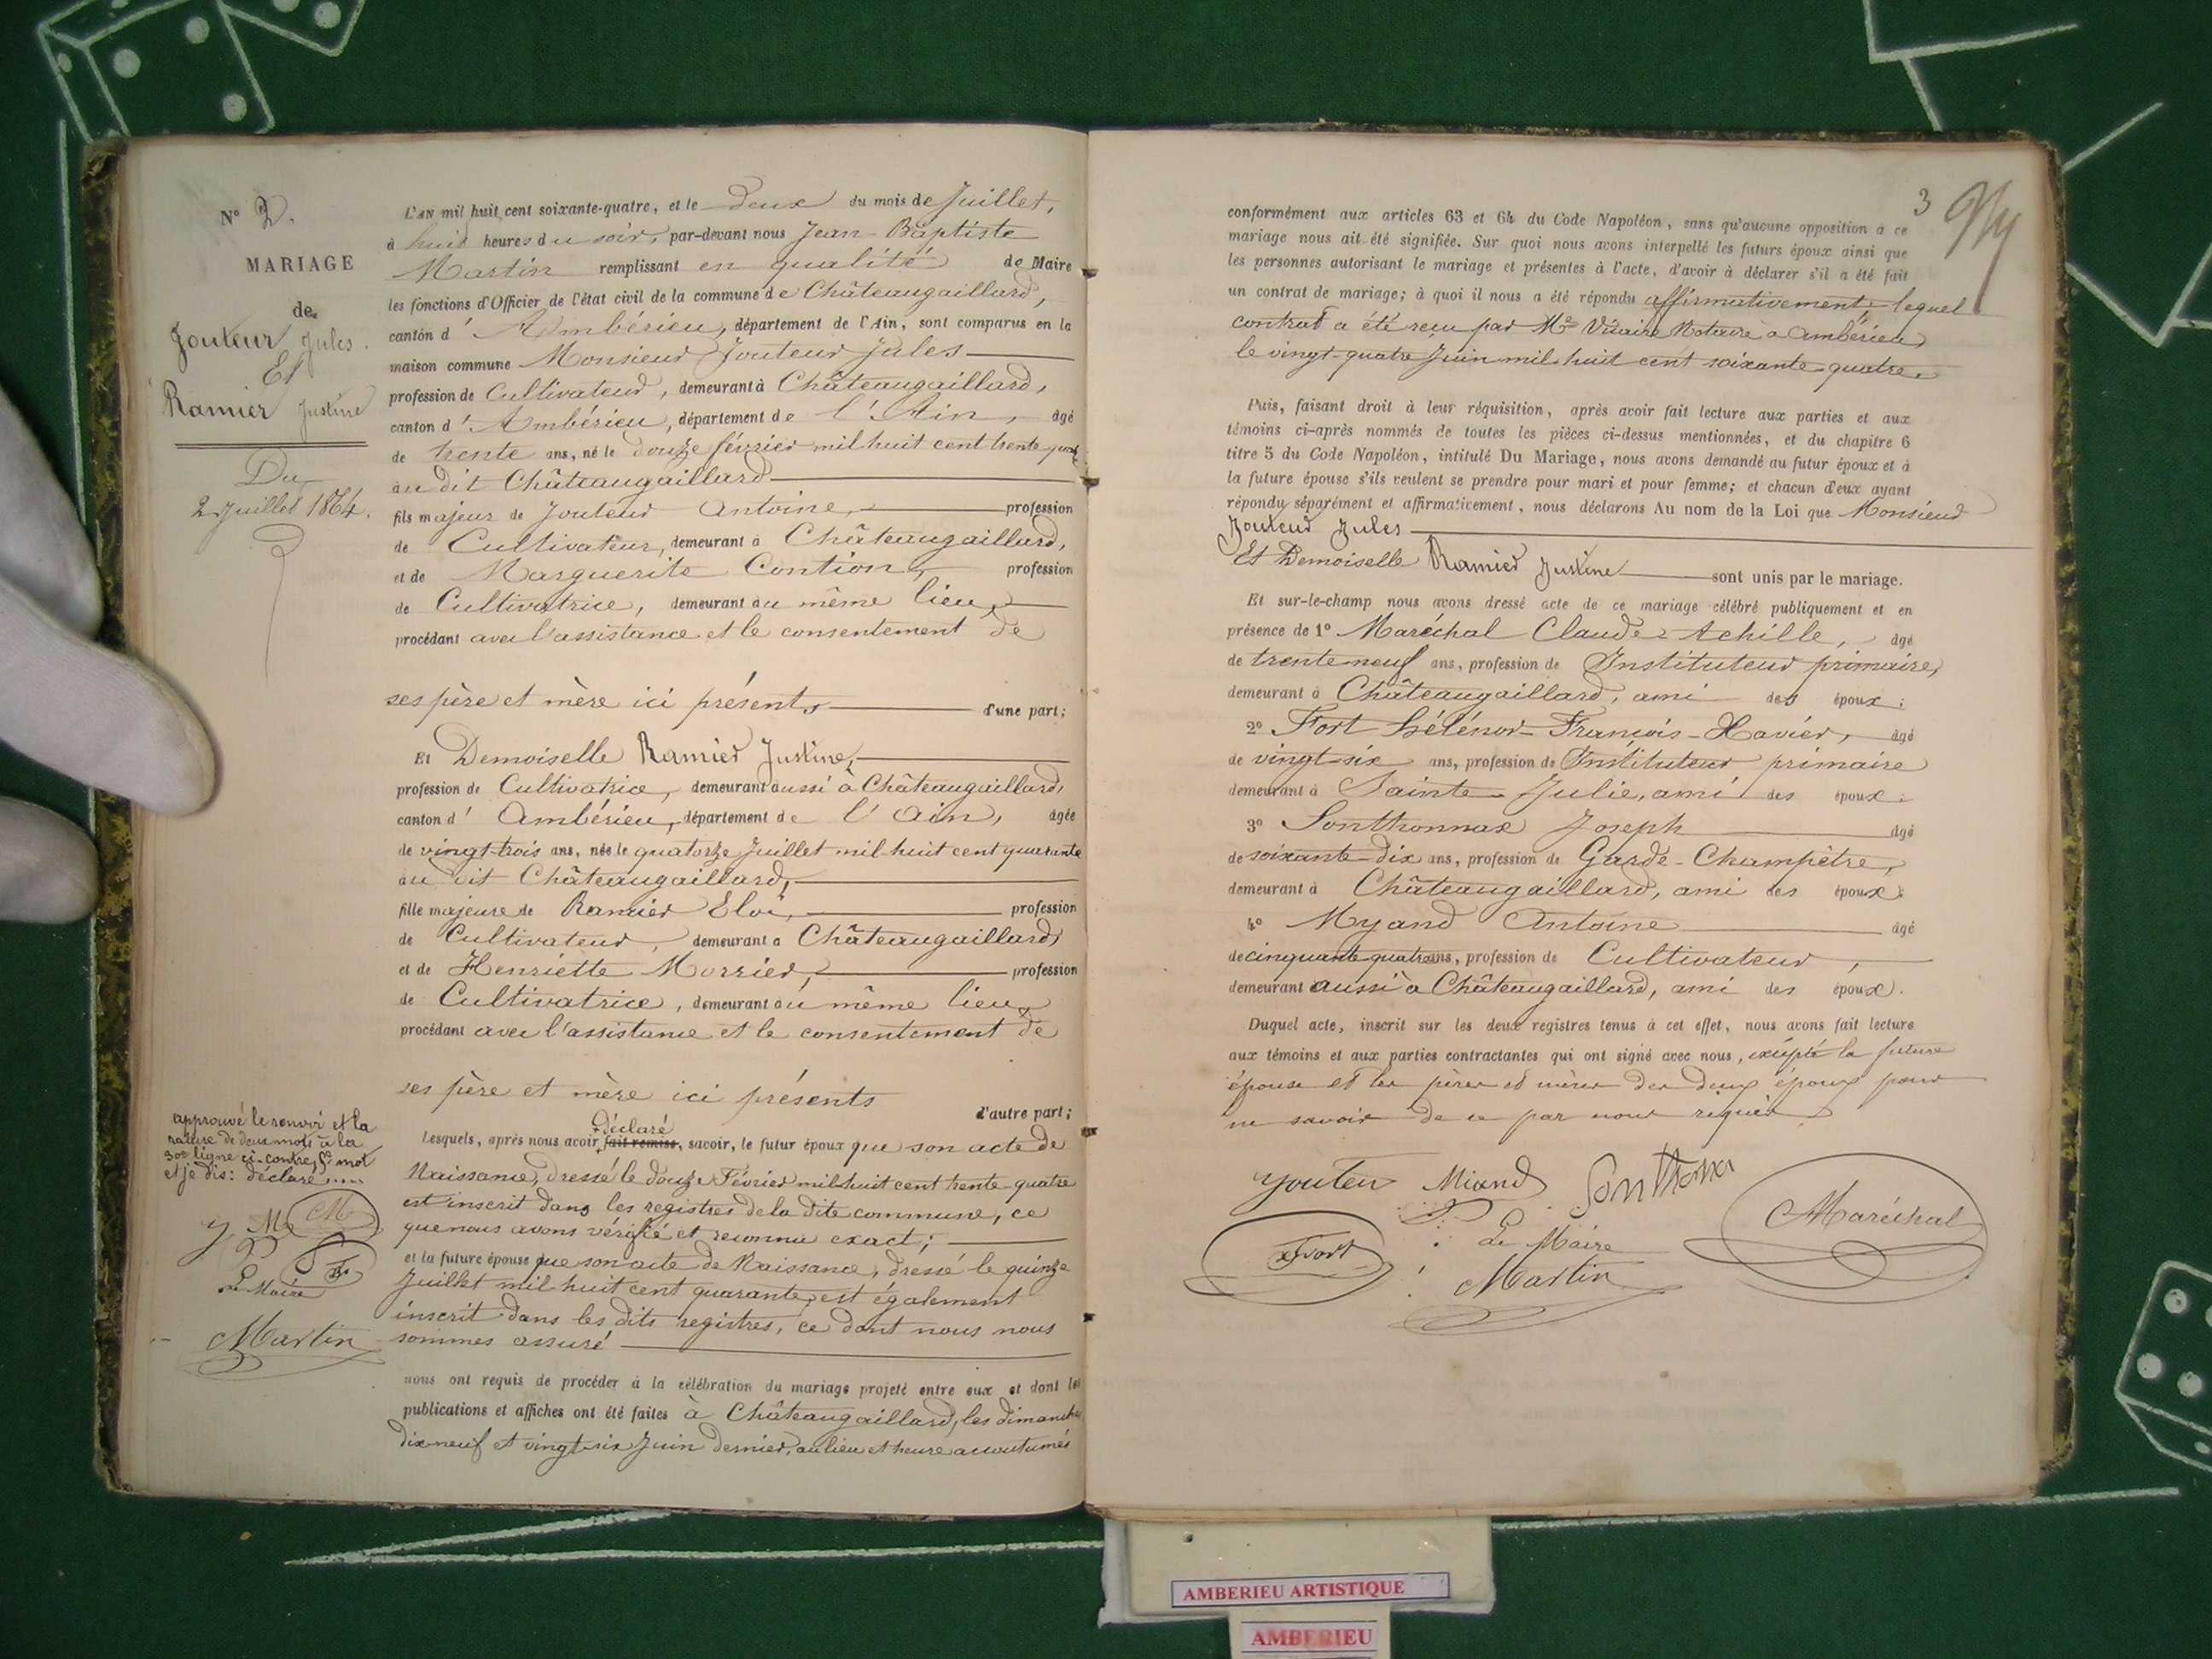 N° 2.
MARIAGE
de
Jouteur Jules.
Et
Ramier Justine
Du
2 Juillet 1864.
L'AN mil huit cent soixante-quatre, et le deux du mois de Juillet,
à huit heures du soir, par-devant nous Jean-Baptiste
Martin remplissant en qualité de Maire
les fonctions d'Officier de l'état civil de la commune de Châteaugaillard,
canton d'Ambérieu, département de l'Ain, sont comparus en la
maison commune Monsieur Jouteur Jules
profession de Cultivateur, demeurant à Châteaugaillard,
canton d'Ambérieu, département de l'Ain, âgé
de trente ans, né le douze février mil huit cent trente quatre
au dit Châteaugaillard
fils majeur de Jouteur Antoine, profession
de Cultivateur, demeurant à Châteaugaillard,
et de Marguerite Contion, profession
de Cultivatrice, demeurant au même lieu,
procédant avec l'assistance et le consentement de
ses père et mère ici présents d'une part;
Et Demoiselle Ramier Justine,
profession de Cultivatrice, demeurant aussi à Châteaugaillard,
canton d'Ambérieu, département de l'Ain, âgée
de vingt-trois ans, née le quatorze Juillet mil huit cent quarante
au dit Châteaugaillard,
fille majeure de Ramier Eloi, profession
de Cultivateur, demeurant à Châteaugaillard,
et de Henriette Morrier, profession
de Cultivatrice, demeurant au même lieu,
procédant avec l'assistance et le consentement de
ses père et mère ici présents
d'autre part;
déclaré
Lesquels, après nous avoir fait remise, savoir, le futur époux que son acte de
Naissance, dressé le douze Février mil huit cent trente-quatre
est inscrit dans les registres de la dite commune, ce
que nous avons vérifié et reconnu exact;
et la future épouse que son acte de Naissance, dressé le quinze
Juillet mil huit cent quarante, est également
inscrit dans les dits registres, ce dont nous nous
sommes assuré
nous ont requis de procéder à la célébration du mariage projeté entre eux et dont les
publications et affiches ont été faites à Châteaugaillard, les dimanches
dix-neuf et vingt-six Juin dernier, au lieu et heure accoutumés
approuvé le renvoi et la
rature de deux mots à la
30e ligne ci-contre, 5e mot
et je dis: déclaré
J M M
Le Maire
Martin
3
conformément aux articles 63 et 64 du Code Napoléon, sans qu'aucune opposition à ce
mariage nous ait été signifiée. Sur quoi nous avons interpellé les futurs époux ainsi que
les personnes autorisant le mariage et présentes à l'acte, d'avoir à déclarer s'il a été fait
un contrat de mariage; à quoi il nous a été répondu affirmativement, lequel
contrat a été reçu par Me Vuaire Notaire à Ambérieu,
le vingt-quatre Juin mil-huit cent soixante-quatre.
Puis, faisant droit à leur réquisition, après avoir fait lecture aux parties et aux
témoins ci-après nommés de toutes les pièces ci-dessus mentionnées, et du chapitre 6
titre 5 du Code Napoléon, intitulé Du Mariage, nous avons demandé au futur époux et à
la future épouse s'ils veulent se prendre pour mari et pour femme; et chacun d'eux ayant
répondu séparément et affirmativement, nous déclarons Au nom de la Loi que Monsieur
Jouteur Jules
Et Demoiselle Ramier Justine sont unis par le mariage.
Et sur-le-champ nous avons dressé acte de ce mariage célébré publiquement et en
présence de 1° Maréchal Claude-Achille, âgé
de trente neuf ans, profession de Instituteur primaire,
demeurant à Châteaugaillard, ami des époux;
2° Fort Hélénor-François-Xavier, âgé
de vingt-six ans, profession de Instituteur primaire
demeurant à Sainte-Julie, ami des époux;
3° Sonthonnax Joseph âgé
de soixante-dix ans, profession de Garde-Champêtre,
demeurant à Châteaugaillard, ami des époux;
4° Myand Antoine âgé
de cinquante quatre ans, profession de Cultivateur,
demeurant aussi à Châteaugaillard, ami des époux.
Duquel acte, inscrit sur les deux registres tenus à cet effet, nous avons fait lecture
aux témoins et aux parties contractantes qui ont signé avec nous, excepté la future
épouse et les pères et mères des deux époux pour
ne savoir de ce par nous requis.
Jouteu Miand Sonthonax
Maréchal
xFort
Le Maire
Martin
AMBERIEU ARTISTIQUE
AMBERIEU